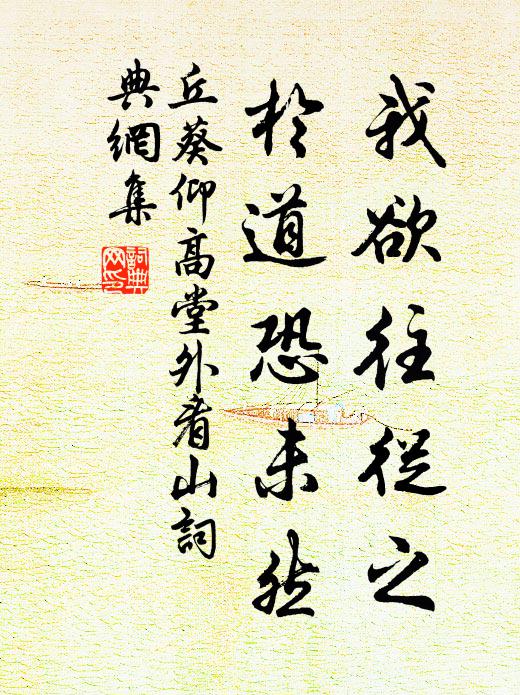 我欲往從之
於道恐未然
丘葵仰高堂外看山詞
典網集
詞典
網印